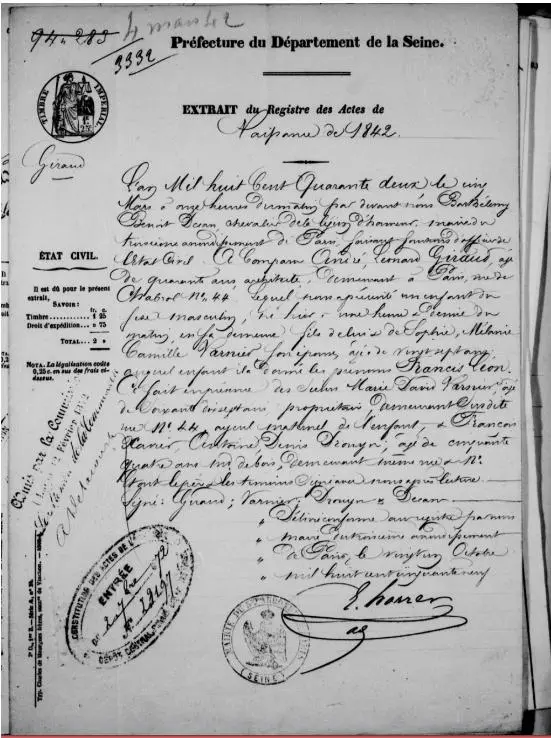 94-283
4 mars 42
3332
Préfecture du Département de la Seine.
EXTRAIT du Registre des Actes de
Naissance de 1842.
TIMBRE IMPERIAL
Giraud
L'an Mil huit Cent Quarante deux le cinq
Mars à onze heures du matin, par devant nous Barthélemy
Benoit Decan, chevalier de la légion d'honneur, maire du
troisième arrondissement de Paris, faisant fonctions d'officier de
l'état Civil. A Comparu André, Léonard Giraud, agé
de quarante ans architecte, demeurant à Paris, rue de
Chabrol No. 44. lequel nous a présenté un enfant du
sexe masculin, né hier, à une heure & demie du
matin, en sa demeure fils de lui & de Sophie, Mélanie
Camille Varnier, son épouse, agée de vingt sept ans,
auquel enfant il a donné les prénoms Francis, Léon.
Ce fait en présence des Sieurs Marie David Varnier, agé
de soixante ans, propriétaire, demeurant susdite
rue No. 44, ayeul maternel de l'enfant, & François
Xavier, Antoine Denis Drouyn, agé de cinquante
quatre ans, md de bois, demeurant même rue & No.
Et ont le père & les témoins signé avec nous après lecture.
Signé: Giraud, Varnier, Drouyn & Decan.
" Délivré conforme au registre par nous
" maire du troisième arrondissement
" de Paris, le vingt un Octobre
" mil huit cent cinquante neuf
ÉTAT CIVIL.
Il est dû pour le présent
extrait,
SAVOIR:
fr. c.
Timbre 1 25
Droit d'expédition. » 75
TOTAL... 2 »
NOTA. La légalisation coûte
0,25 c. en sus des frais ci-
dessus.
Admis par la Commission
(Loi du 12 FÉVRIER 1872)
Le Membre de la Commission
CONSTITUTION DES ACTES DE L'
ENTRÉE
MAIRIE DU
(SEINE)